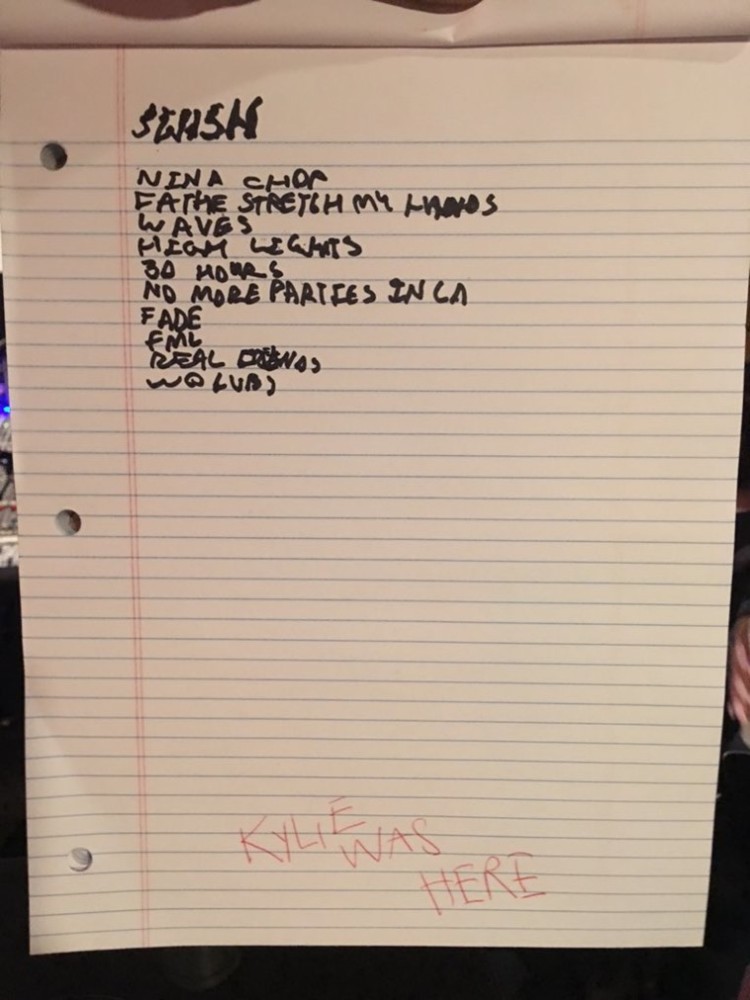 NINA CHOP
FATHE STRETCH MY HANDS
WAVES
HIGH LIGHTS
30 HOURS
NO MORE PARTIES IN LA
FADE
FML
REAL FRIENDS
WOLVES
KYLIE
WAS
HERE